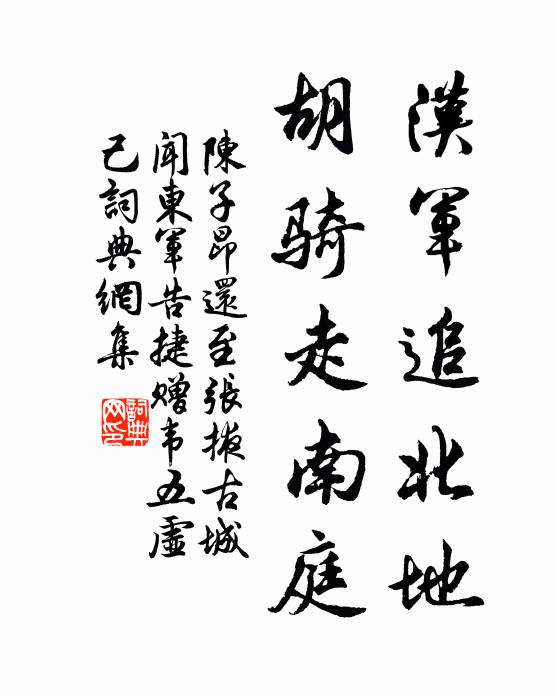 漢軍追北地
胡騎走南庭
陳子昂還至張掖古城
聞東軍告捷贈韦五虛
己詞典網集
詞典
网印